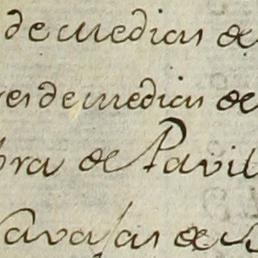 de medias de
res de medias de
bra de Pavil
Navajas de